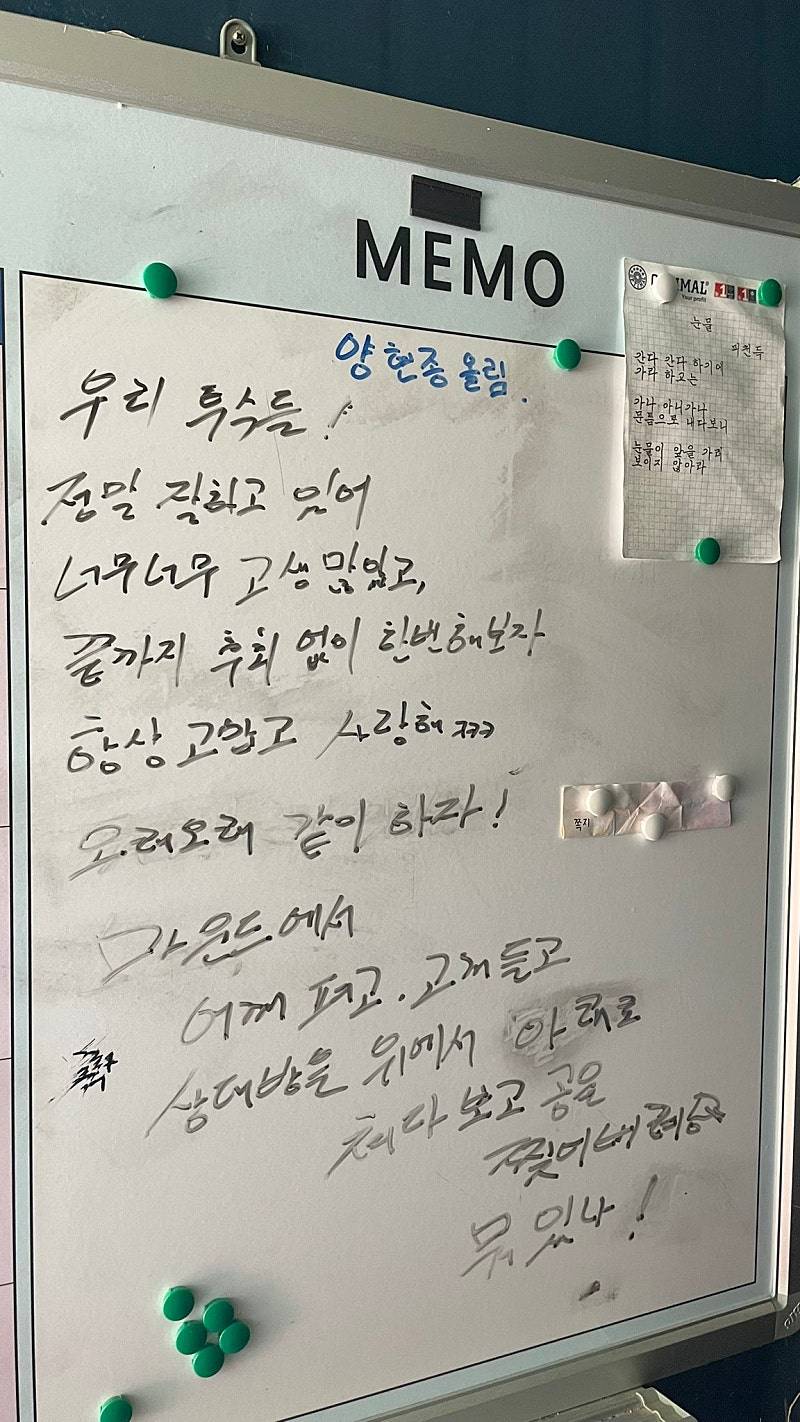 MEMO
양현종 올림.
우리 투수들!
정말 잘하고 있어
너무너무 고생많았고,
끝까지 후회 없이 한번해보자
항상 고맙고 사랑해 ㅋㅋㅋ
오래오래 같이 하자!
마운드에서
어깨 펴고. 고개 들고
상대방을 위에서 아래로
쳐다 보고 공을
찢어버려
뭐 있나!
Your profit
눈물
피천득
간다 간다 하기에
가라 하고는
가나 아니가나
문틈으로 내다보니
눈물이 앞을 가려
보이지 않아라
쪽지